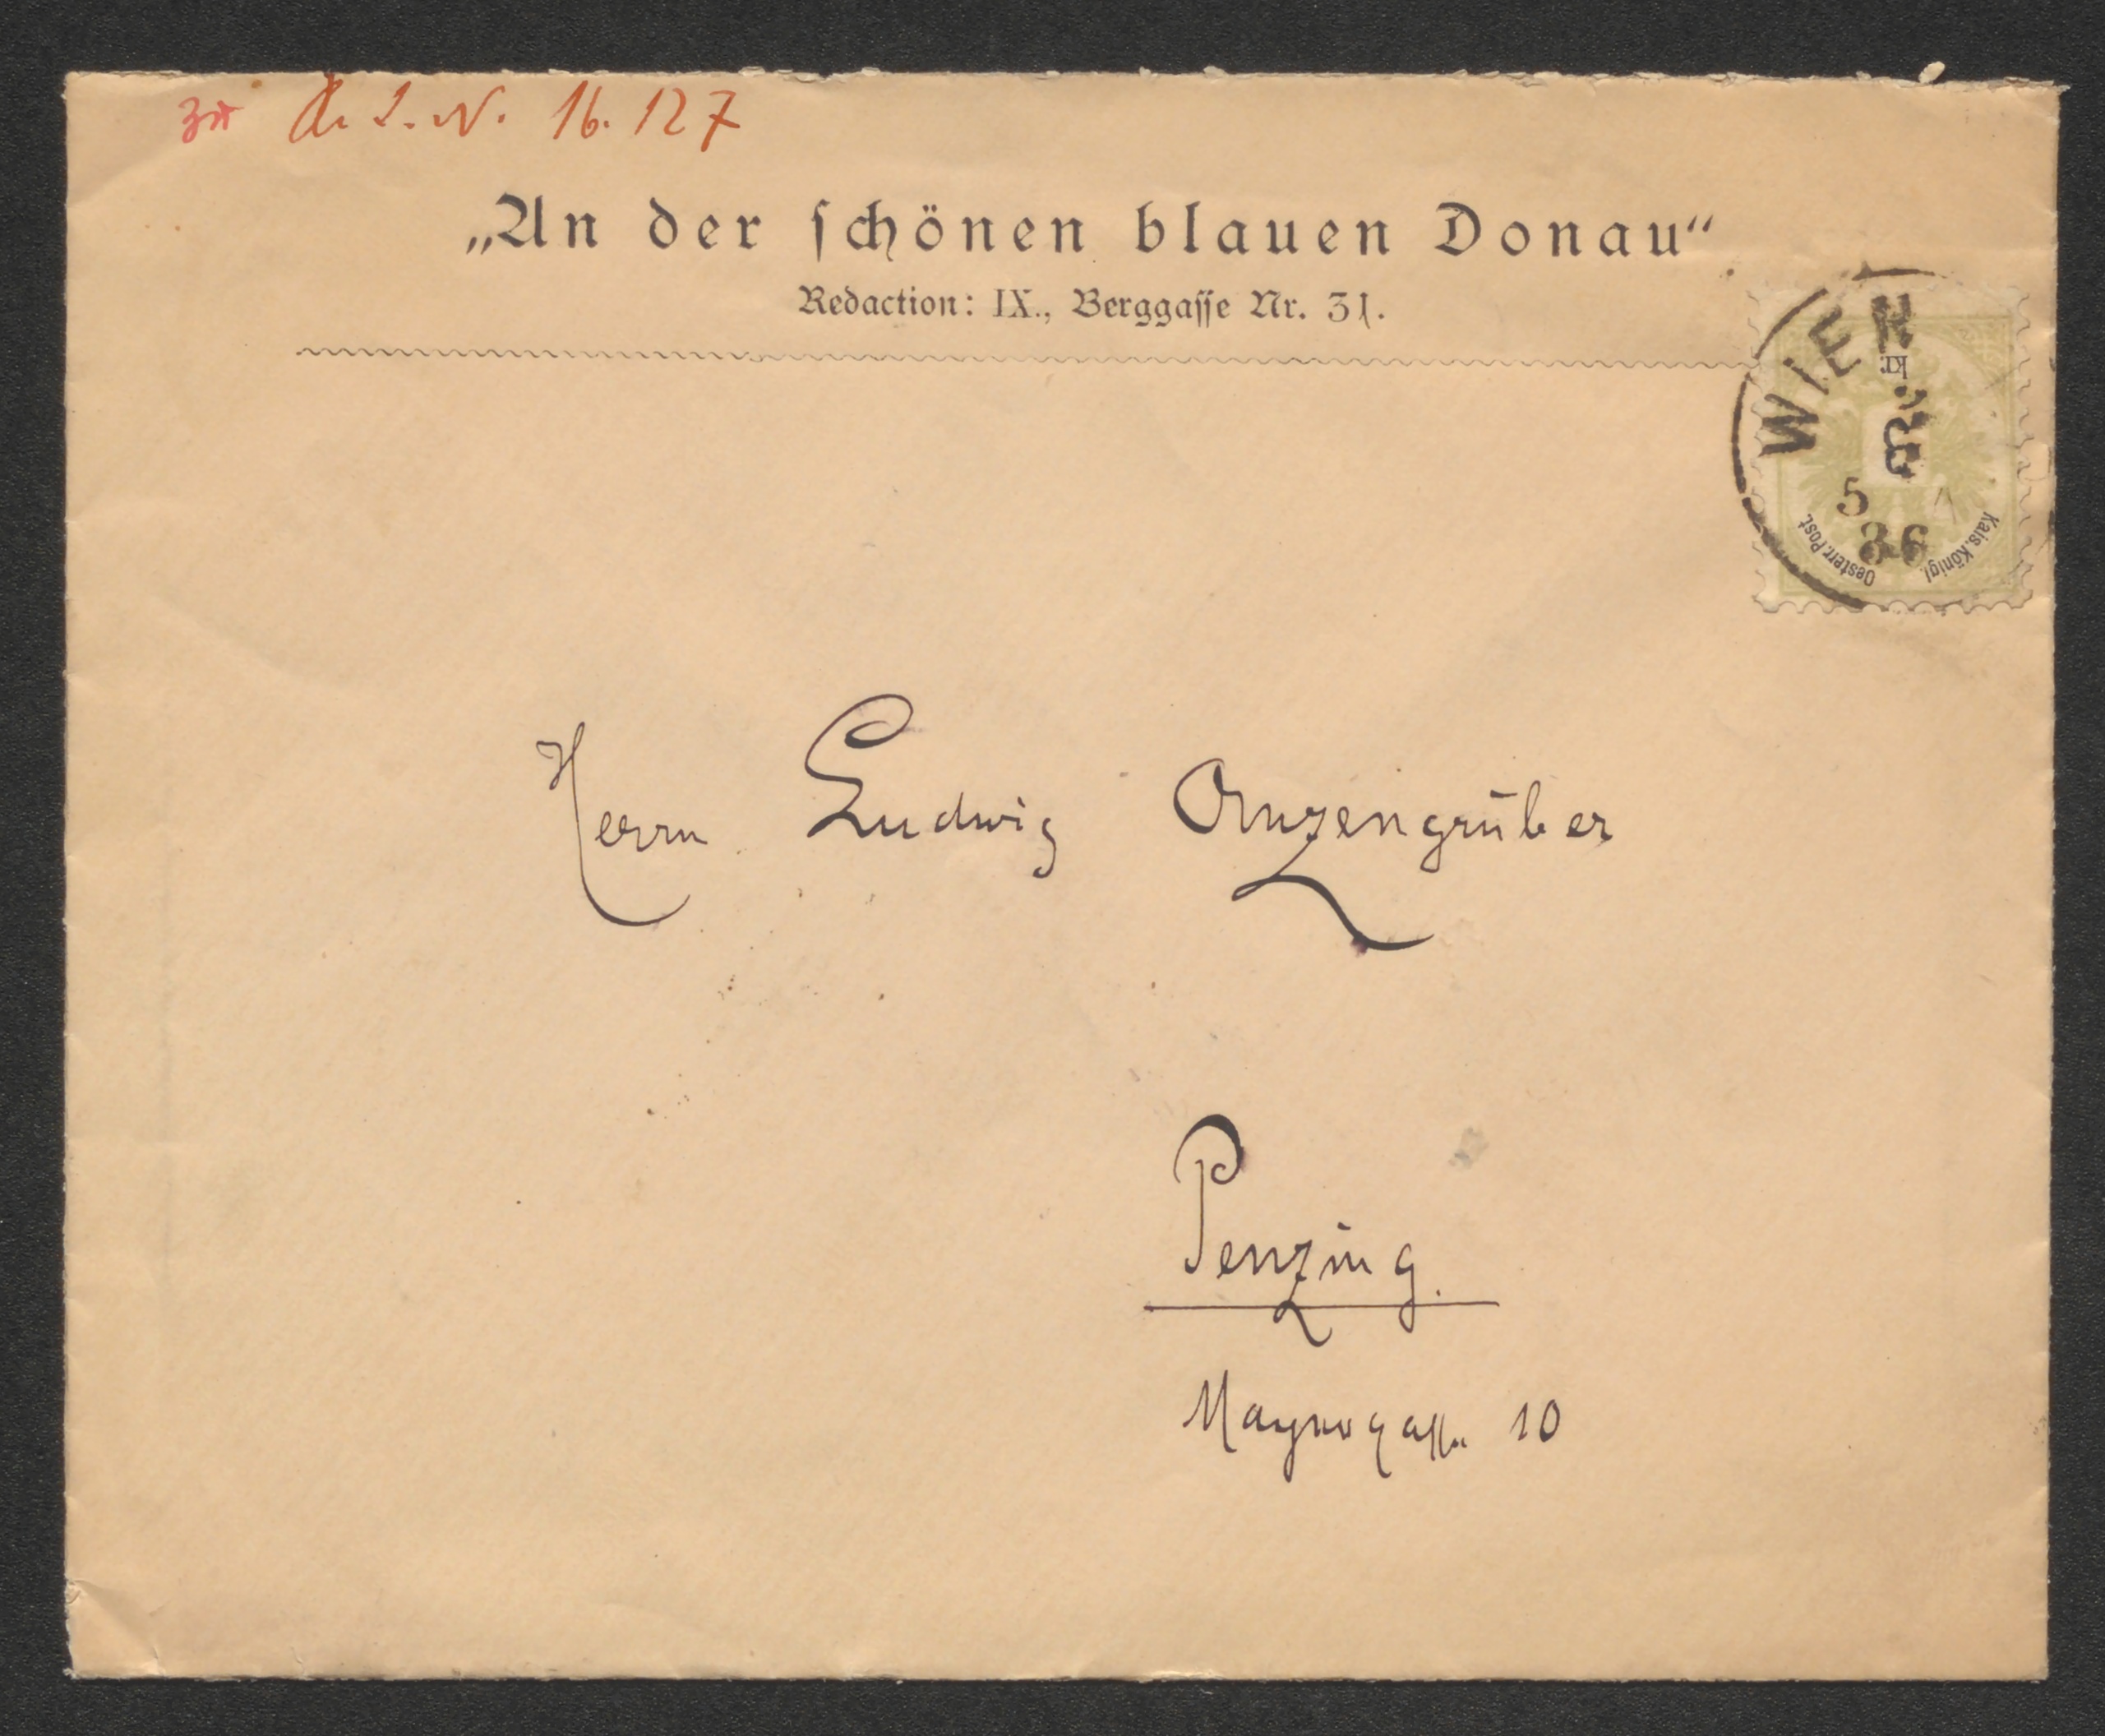 zu I. N. 16.127
„An der schönen blauen Donau“
Redaction: IX., Berggasse Nr. 31.
WIEN
kr.
5
86
Kais. Königl.
Oesterr. Post.
Herrn Ludwig Anzengruber
Penzing.
Mayrogasse 10